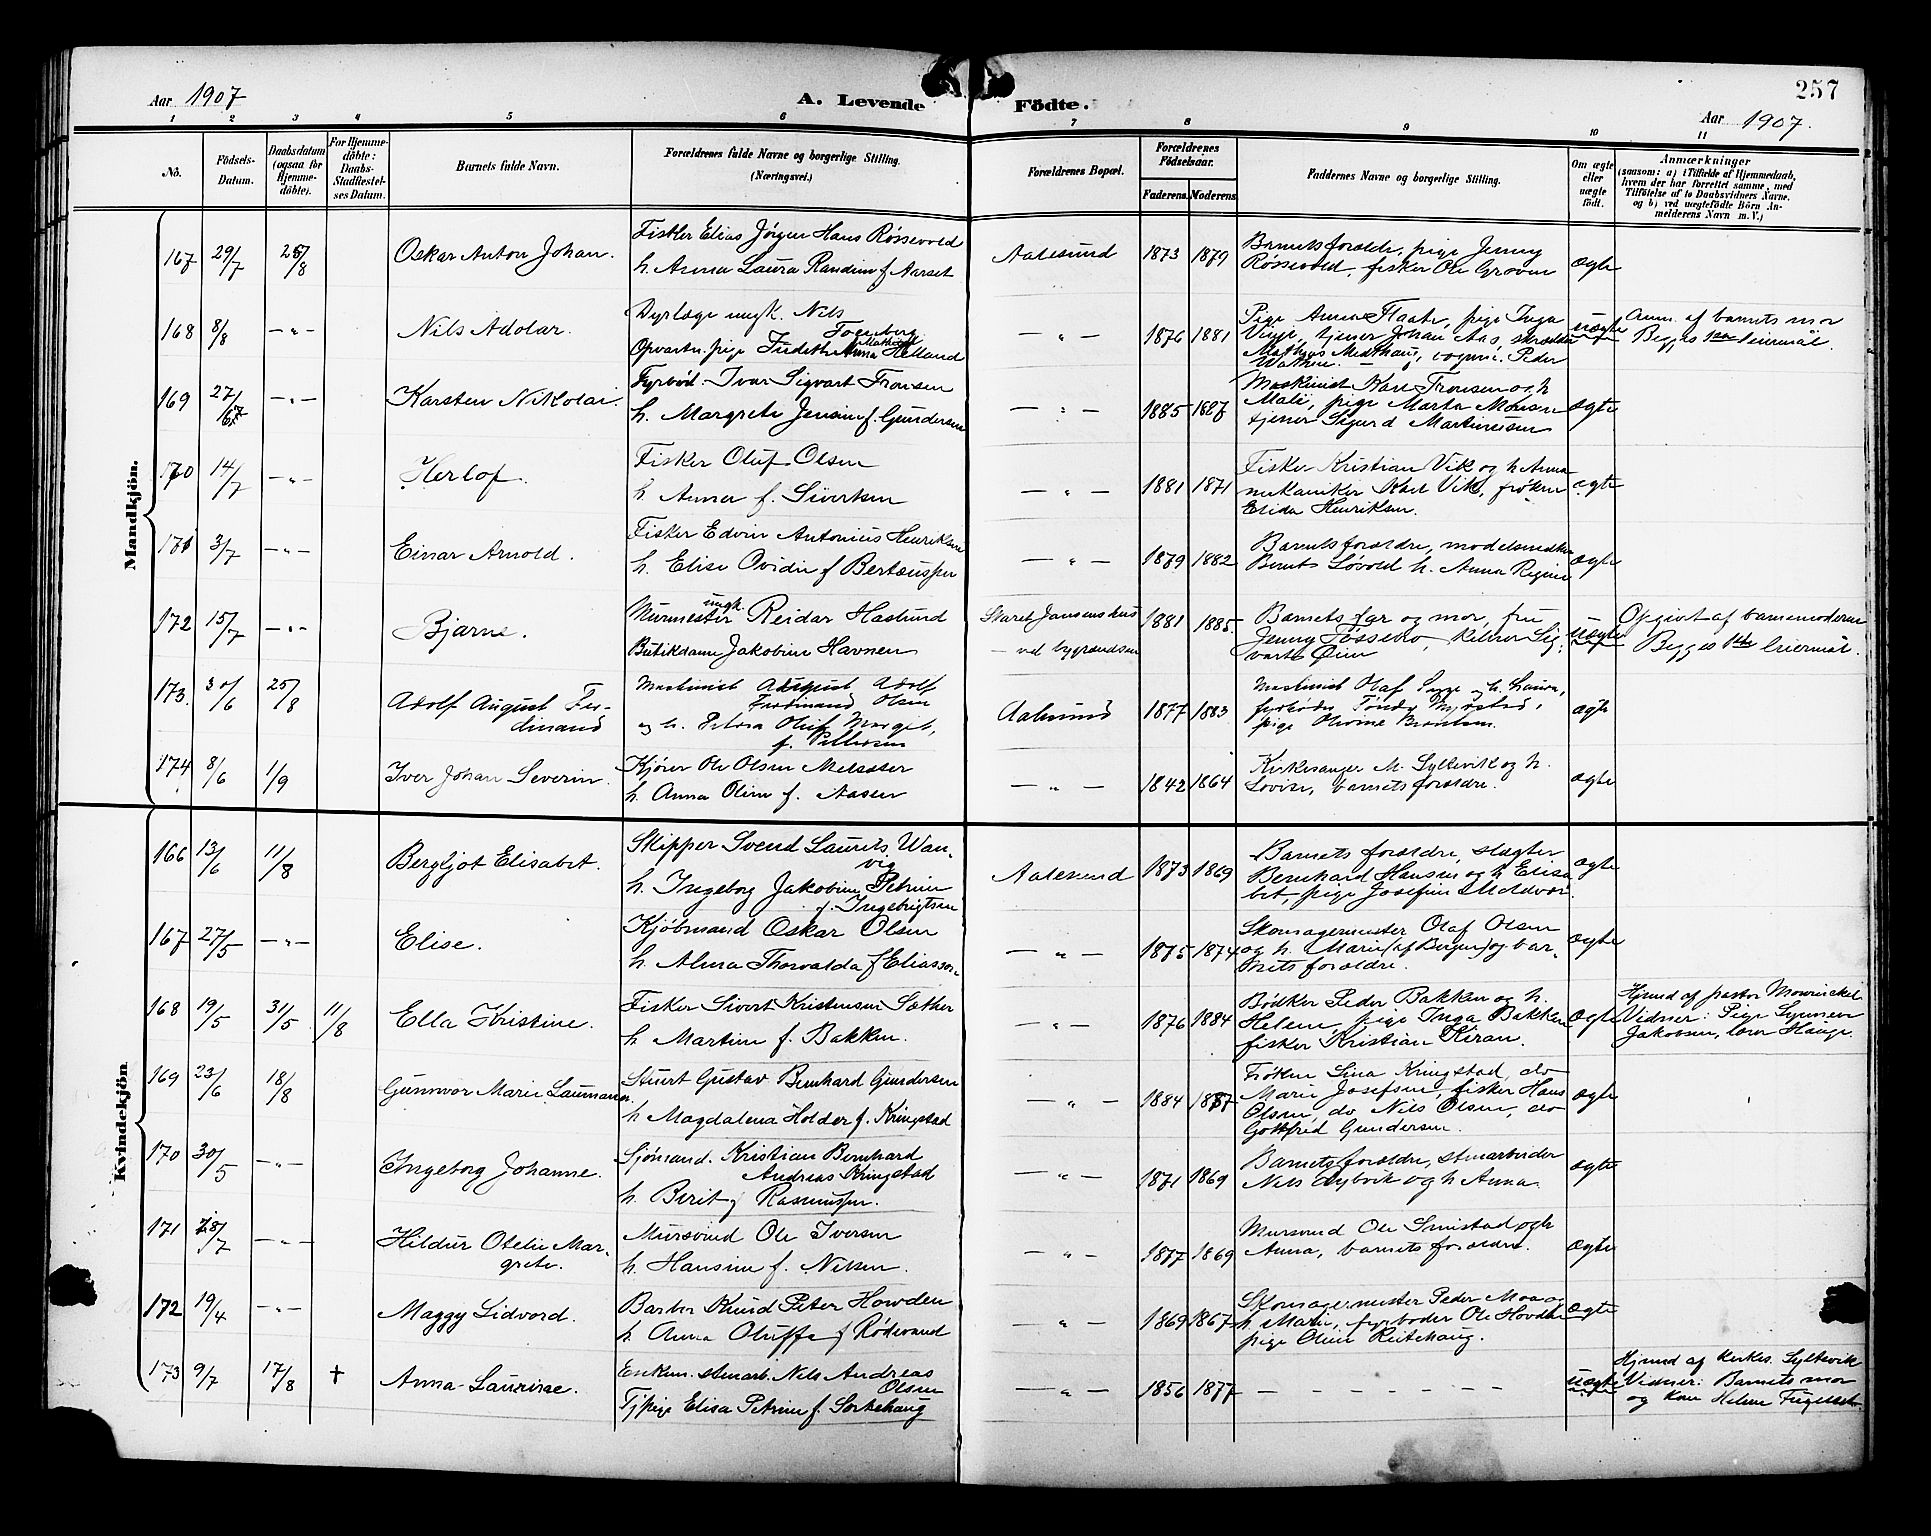 257
Aar 1907
A. Levende Födte.
Aar 1907.
1 2 3 4 5 6 7 8 9 10 11
No.
Födsels-
Datum.
Daabsdatum
(ogsaa for
Hjemme-
döbte).
For Hjemme-
döbte:
Daabs-
Stadfæstel-
ses Datum.
Barnets fulde Navn.
Forældrenes fulde Navne og borgerlige Stilling.
(Næringsvei.)
Forældrenes Bopæl.
Forældrenes
Födselsaar.
Faderens.
Moderens.
Faddernes Navne og borgerlige Stilling.
Om ægte
eller
uægte
födt.
Anmærkninger
(saasom: a) i Tilfælde af Hjemmedaab,
hvem der har forrettet samme, med
Tilföielse af to Daabsvidners Navne,
og b) ved uægtefödte Börn An-
melderens Navn m. V.)
Mandkjön.
167 29/7 25/8 Oskar Anton Johan.
Fisker Elias Jørgen Hans Røssevold
h. Anna Laura Randine f. Aarset
Aalesund 1873 1879
Barnets forældre, pige Jenny
Røssevold, fisker Ole Groven
ægte
168 8/8 — „ — Nils Adolar.
Dyrlæge ungk. Nils
Opvartn. pige Judith Anna Helland
— „ — 1876 1881
Pige Anna Flaate, pige Inga
tjener Johan Aas,
uægte
Anm. af barnets mor
Begges 1ste leiermål.
169 27/6 — „ — Karsten Nikolai
Fyrbød. Ivar Sigvart Tronsen
h. Margrete Jensine f. Gundersen
— „ — 1885 1887
Maskinist Karl Tronsen og h.
Mali, pige Marta Monsen
tjener Sigurd Martinusen
ægte
170 14/7 — „ — Herlof.
Fisker Oluf Olsen
h. Anna f. Sivertsen
— „ — 1881 1871
Fisker Kristian Vik og h. Anna
mekaniker Karl Vik, frøken
Elida Henriksen.
ægte
171 3/7 — „ — Einar Arnold.
Fisker Edvin Antonius Henriksen
h. Elise Ovidie f. Berteussen
— „ — 1879 1882
Barnets forældre, modelsnedker
Bernt Løvold h. Anna Regine
ægte
172 15/7 — „ — Bjarne.
Murmester ungk. Reidar Haslund
Butikdame Jakobine Havnen
Skaret Jansenshus
— ved bygrændsen
1881 1885.
Barnets far og mor, fru
Jenny Fossemo, kelner Sig-
vart Øien
uægte
Opgivt af barnemoderen
Begges 1ste leiermål.
173. 30/6 25/8 Adolf August Fer-
dinand
Maskinist August Adolf
Ferdinand Olsen
og h. Petra Oluf Margit,
f. Pettersen
Aalesund 1877 1883
Maskinist Olaf og h. Laura,
fyrbøder
pige Olovine
ægte
174 8/6 1/9 Iver Johan Severin.
Kjører Ole Olsen Melsæter
h. Anna Oline f. Aasen
— „ — 1842 1864
Kirkesanger M. Syltevik og h.
Lovise, barnets forældre.
ægte
Kvindekjön
166 13/6 11/8 Bergljot Elisabet.
Skipper Svend Laurits Wan-
vig
h. Ingeborg Jakobine Petrine
f. Ingebrigtsen
Aalesund 1873 1869
Barnets forældre, slagter
Bernhard Hansen og h. Elisa-
bet, pige Josefine Moldvær
ægte
167 27/5 — „ — Elise.
Kjøbmand Oskar Olsen
h. Alma Thorvalda f. Eliassen
— „ — 1875 1874
Skomagermester Olaf Olsen
og h. Marie (af Bergen) og bar-
nets forældre.
ægte
168 19/5 31/5 11/8 Ella Kristine.
Fisker Sivert Kristensen Sæther
h. Martine f. Bakken.
— „ — 1876 1884
Bødker Peder Bakken og h.
Helene, pige Inga Bakken
fisker Kristian Kiran.
ægte
Hjmd af pastor Mowinckel
Vidner: Pige
Jakobsen, lærer Hauge.
169 23/6 18/8 Gunnvor Marie Laumann.
Stuert Gustav Bernhard Gundersen
h. Magdalena Holder f. Kringstad
— „ — 1884 1877
Frøken Sina Kringstad, do
Marie Josefsen, fisker Hans
Olsen, do Nils Olsen, do
Gottfred Gundersen.
ægte
170 30/5 — „ — Ingeborg Johanne.
Sjømand. Kristian Bernhard
Andreas Kringstad
h. Berit f. Rasmussen.
— „ — 1871 1869
Barnets forældre, stenarbeider
Nils Nybvik og h. Anna.
ægte
171 28/7 — „ — Hildur Otelie Mar-
grete.
Mursvend Ole Iversen
h. Hansine f. Nilsen.
— „ — 1877 1869
Mursvend Ole Smistad og h.
Anna, barnets forældre.
ægte
172 19/4 — „ — Maggy Lidvord.
Barber Knud Peter Howden
h. Anna Oluffa f. Rødsand
— „ — 1869 1867
Skomagermester Peder Moa og
h. Marie, fyrbøder Ole Hovden
pige Oline Reitehaug.
ægte
173 9/7 17/8 + Anna Laurine.
Enkem. stenarb. Nils Andreas
Olsen
Tj.pige Elisa Petrine f. Sortehaug
— „ — 1856 1877 — — — — — — —
uægte
Hjmd af kirkes. Syltevik
Vidner: Barnets mor
og kone Helene